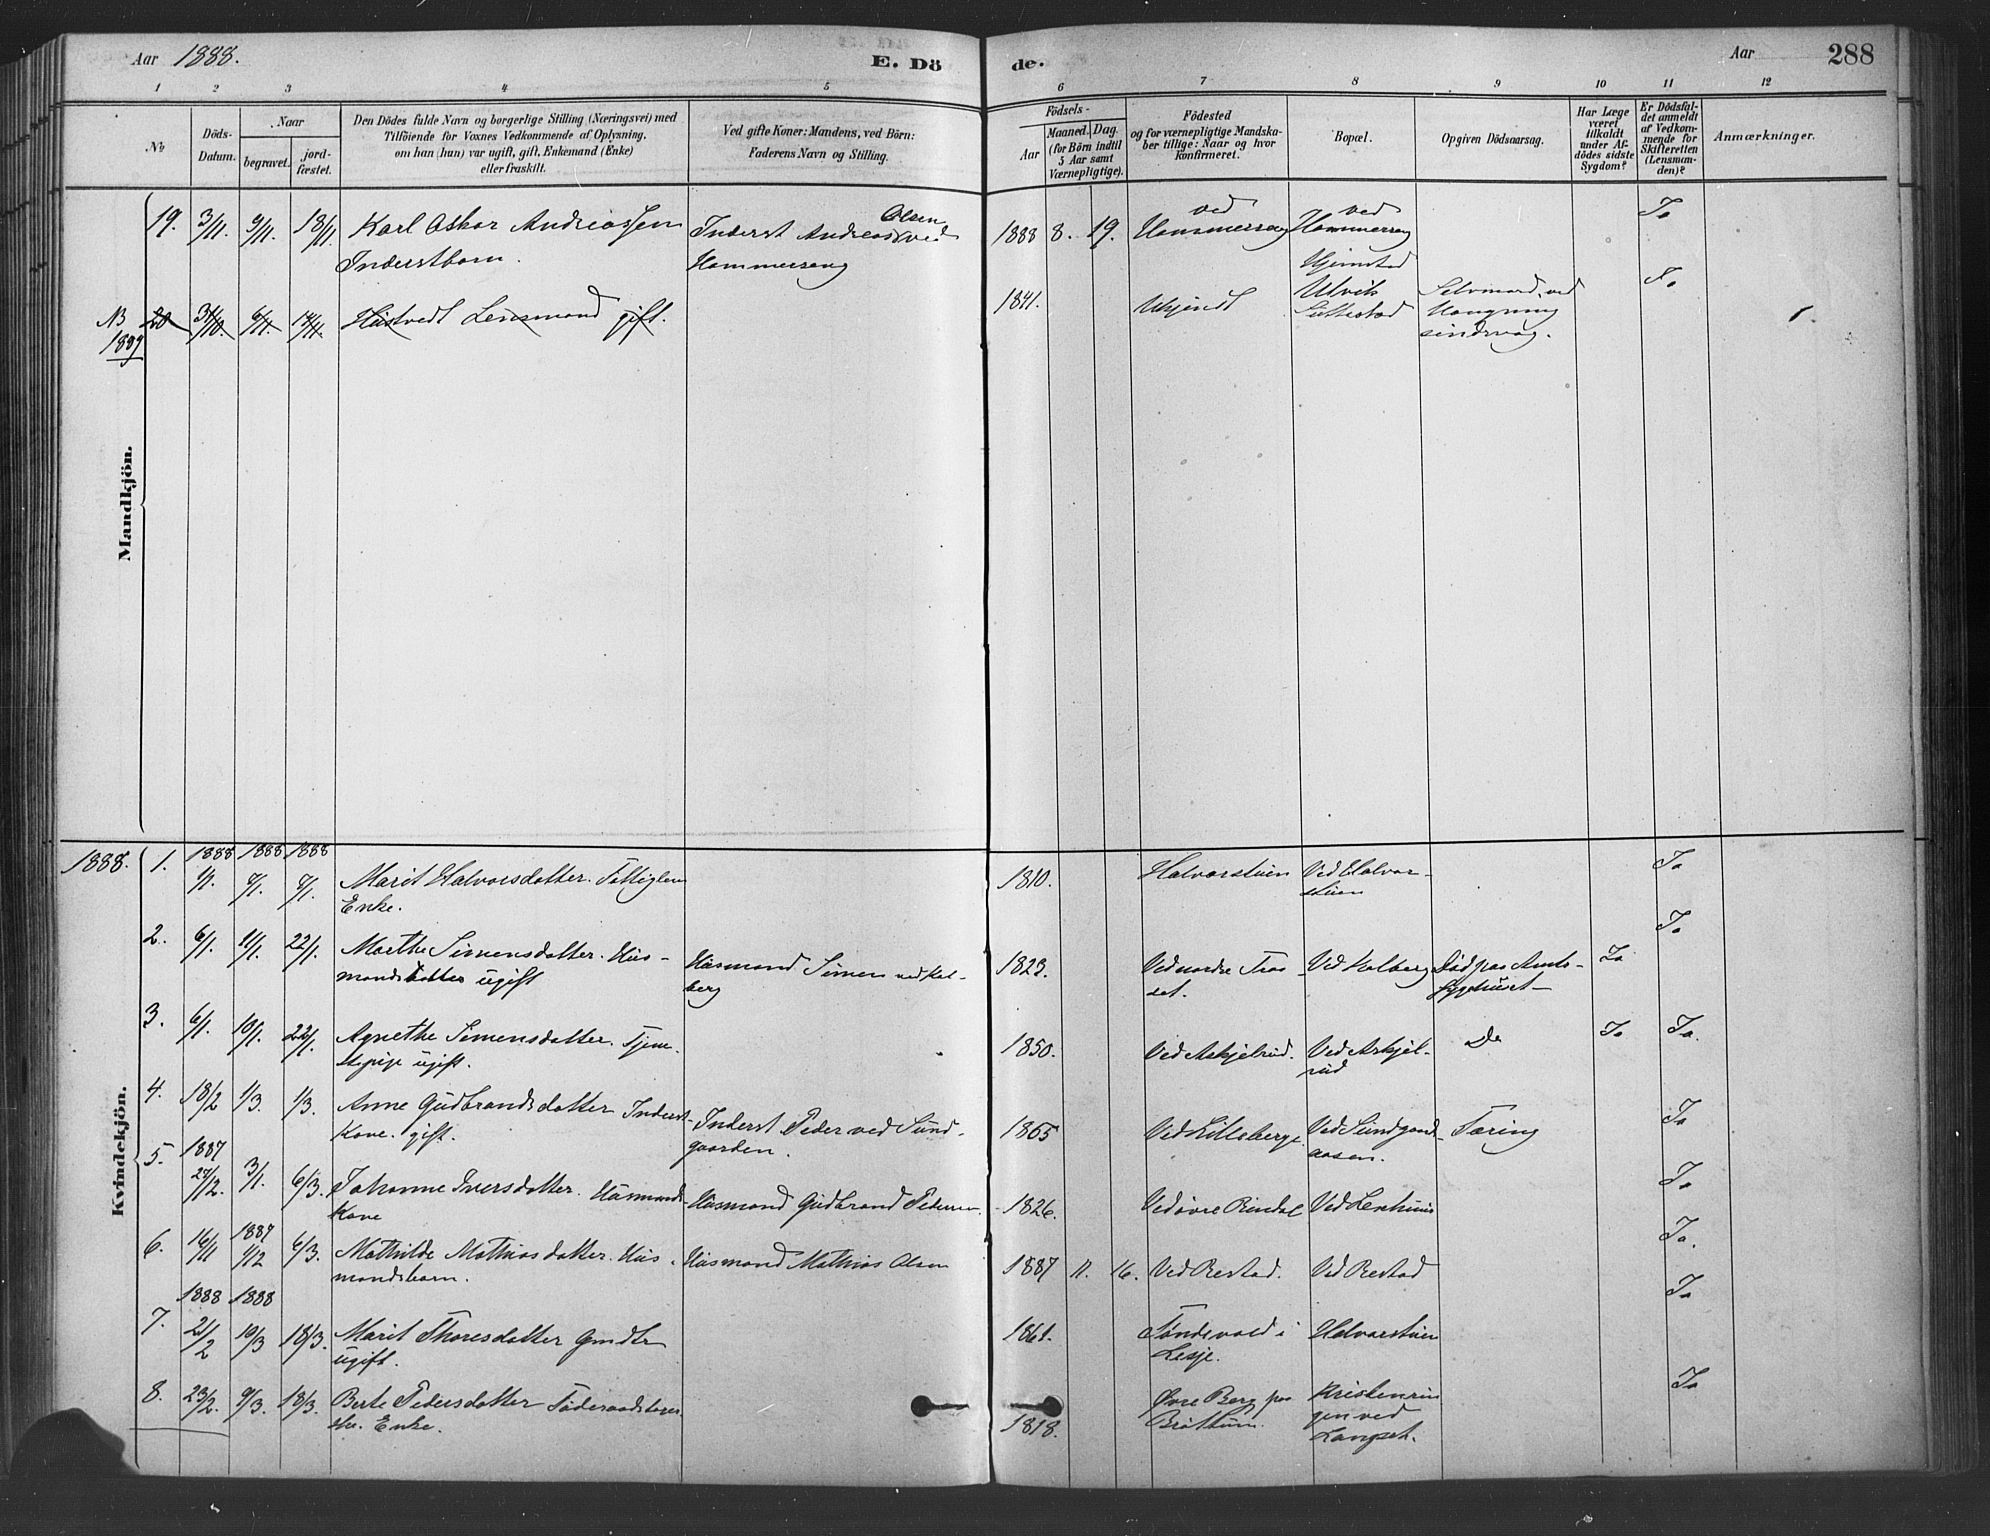 Aar 1888.
E. Dö
de.
Aar
288
1 2 3 4 5 6 7 8 9 10 11 12
No
Döds-
Datum.
Naar
begravet.
jord-
fæstet.
Den Dödes fulde Navn og borgerlige Stilling (Næringsvei) med
Tilföiende for Voxnes Vedkommende af Oplysning,
om han (hun) var ugift, gift, Enkemand (Enke)
eller fraskilt.
Ved gifte Koner: Mandens, ved Börn:
Faderens Navn og Stilling.
Födsels-
Aar
Maaned. Dag.
(for Börn indtil
5 Aar samt
Værnepligtige).
Födested
og for værnepligtige Mandska-
ber tillige: Naar og hvor
konfirmeret.
Bopæl.
Opgiven Dödsaarsag.
Har Læge
været
tilkaldt
under Af-
dödes sidste
Sygdom?
Er Dödsfal-
det anmeldt
af Vedkom-
mende for
Skifteretten
(Lensman-
den)?
Anmærkninger.
Mandkjön.
19. 3/11. 9/11. 18/11. Karl Oskar Andreassen
Inderstbarn.
Inderst Andreas Olsen ved
Hommerseng
1888 8. 19. ved
Hommerseng
ved
Hommerseng
Ja
NB
1889
20 31/10. 6/11. 18/11. Hustvedt Lensmand gift.
1841. Ukjendt
Ulvik
Suttestad
Selvmord, ved
Hængning
sindsvag.
Kvindekjön.
1888. 1. 1888 1888 1888
1/1. 8/1. 8/1. Marit Halvorsdatter. Fattiglem
Enke.
1810. Halvorstuen Ved Halvor-
stuen
Ja
2. 6/1. 11/1. 22/1. Marthe Simensdatter. Hus-
mandsdatter ugift
Husmand Simen ved Kol-
berg
1823. Ved nordre Tros
set. Ved Kolberg Död paa Amts-
sygehuset Ja Ja
3. 6/1. 10/1. 22/1. Agnethe Simensdatter. Tjene-
stepige ugift.
1850. Ved Askjelrud. Ved Askjel-
rud Do Ja Ja.
4. 18/2 1/3. 1/3. Anne Gudbrandsdatter Inderst-
Kone. gift.
Inderst Peder ved Sund-
gaarden.
1865 Ved Lilleberge Ved Sundgaard-
aasen. Tæring Ja
5. 1887
27/12. 3/1. 6/3. Johanne Iversdatter. Husmands-
Kone
Husmand Gudbrand Pedersen.
1826. Ved övre Rindal Ved Lenhuus Ja
6. 16/11 1887
1/12 6/3. Mathilde Mathiasdatter. Hus-
mandsbarn.
Husmand Mathias Olsen
1887 11. 16. Ved Restad. Ved Restad Ja.
7. 1888 1888
21/2 10/3 18/3. Marit Thoresdatter
ugift.
1861. Töndevold i
Lesje. Halvorstuen Ja
8. 23/2. 9/3. 18/3. Berte Pedersdatter Föderaads
Enke.
1818. Övre Berg paa
Bröttum. Kristenrin
gen ved
Langset. Ja